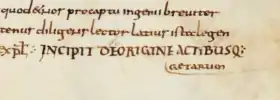 quod &quor procaptu ingenii breviter
tenus diligens lector latius iste legen
expl̅. INCIPIT DE ORIGINE ACTIBUSQ;
GETARUM